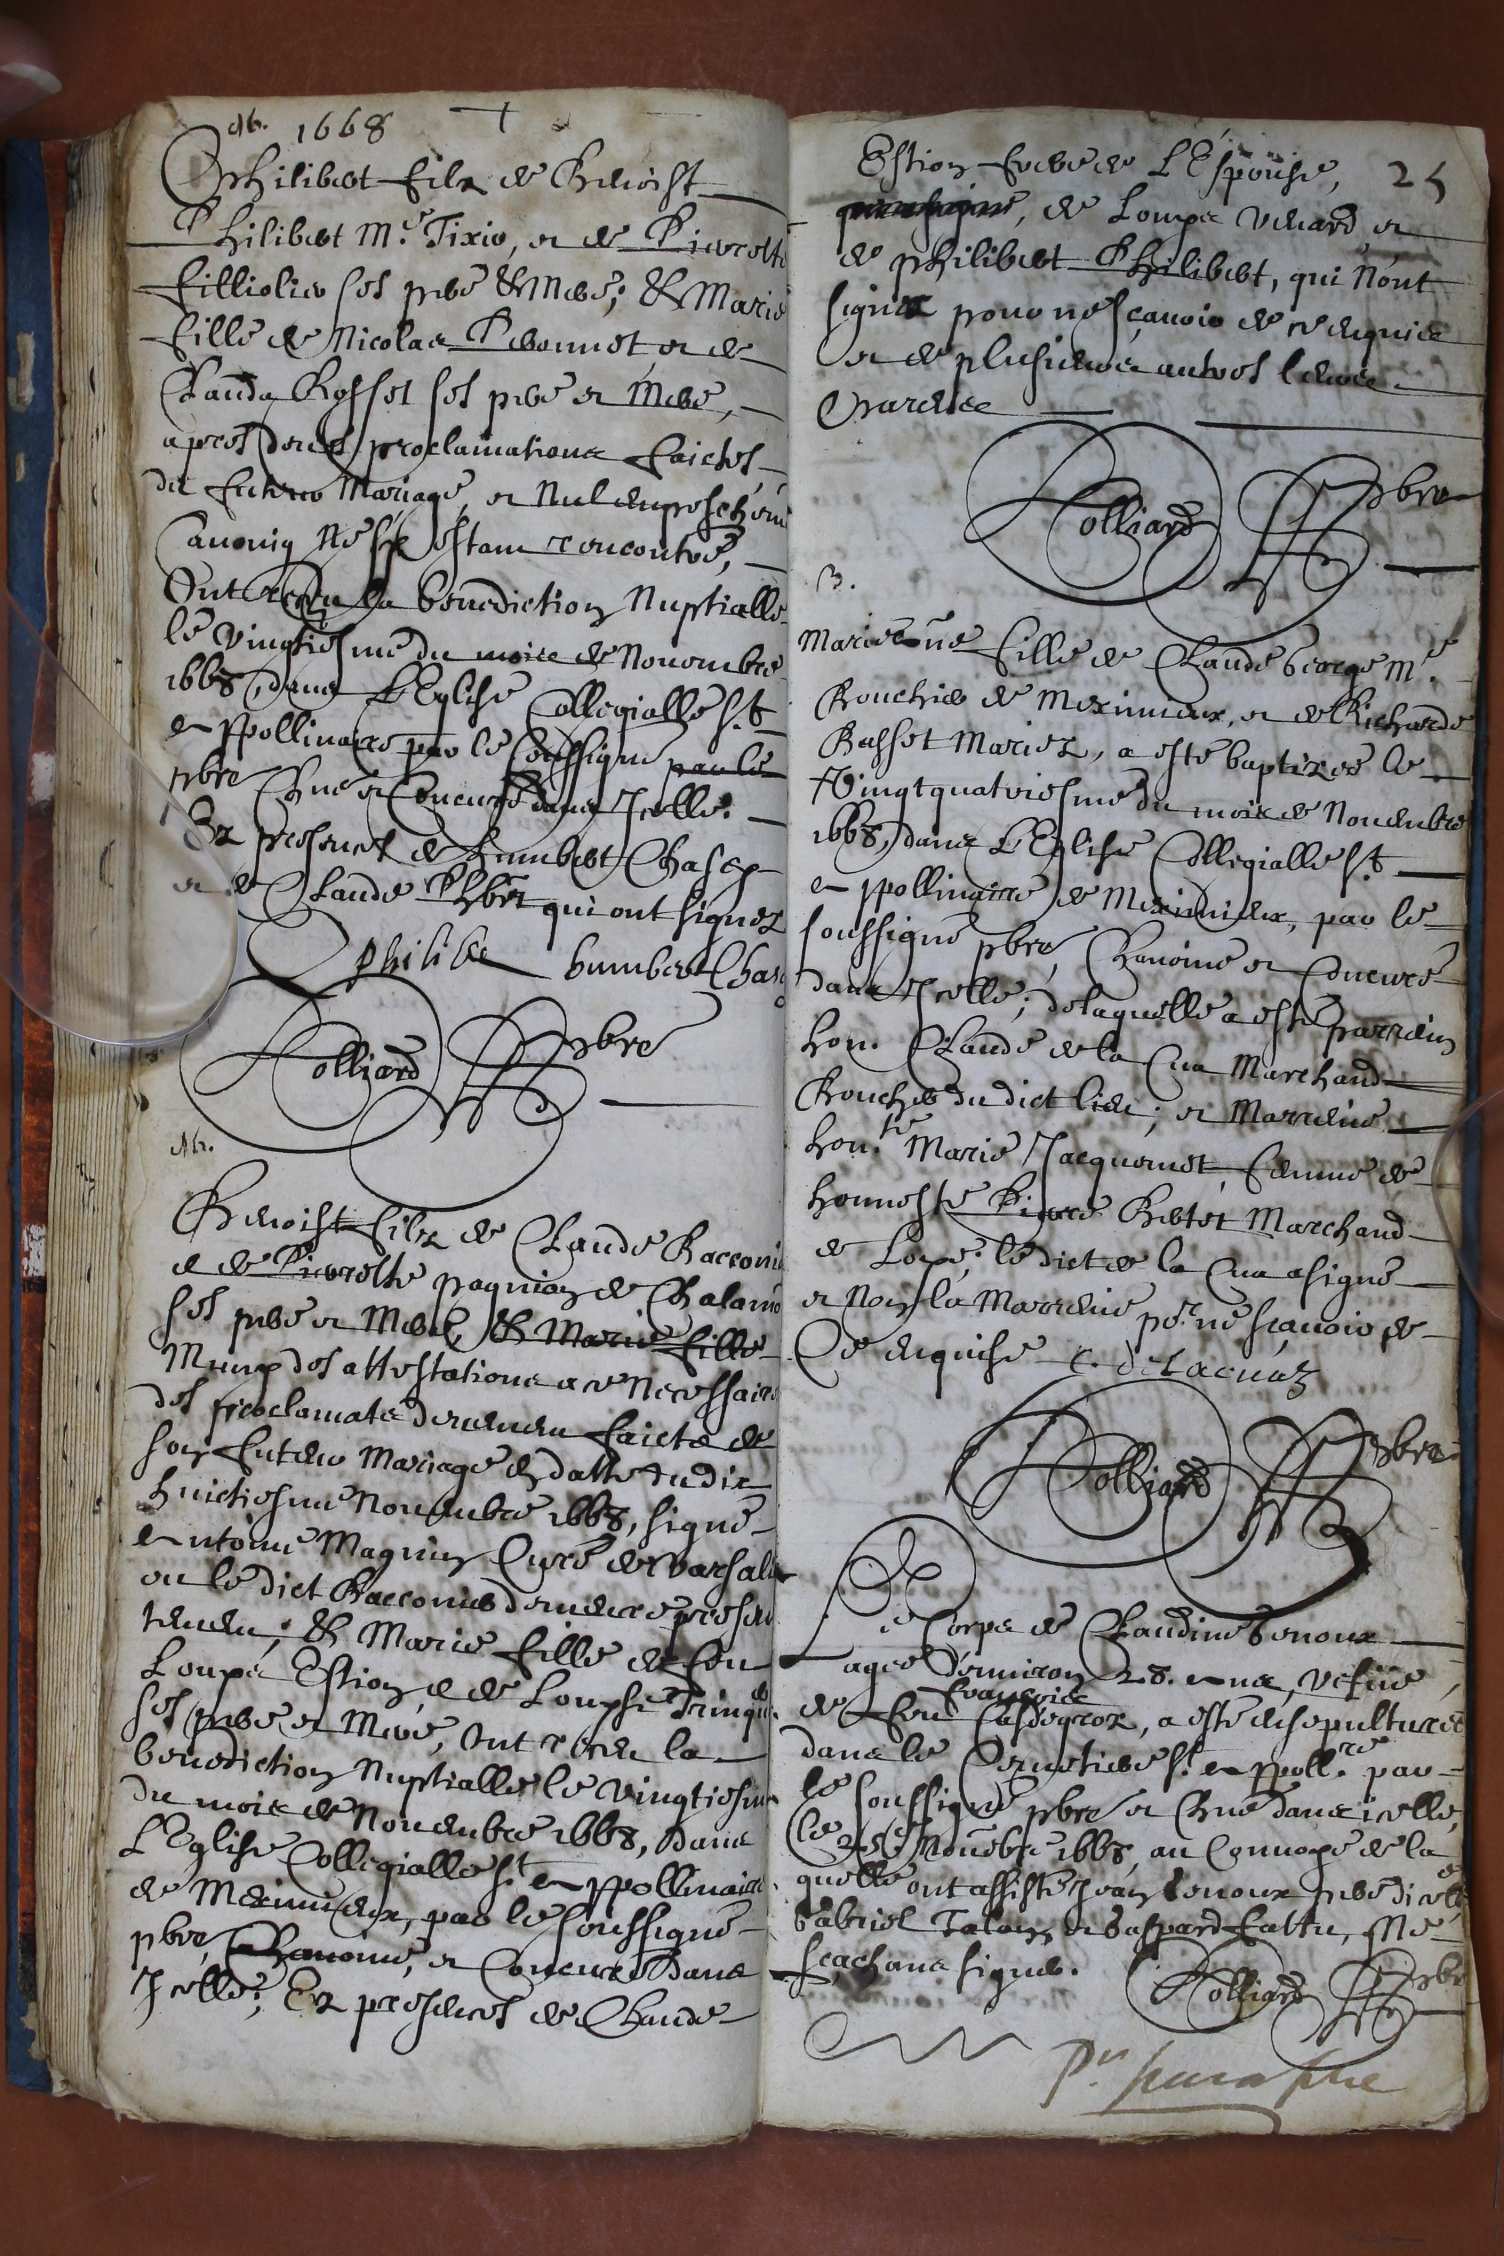 Ab. 1668
Philibert filz de Benoist
Philibert Me. Tixier, et de Pierrette
Filliolier ses pere & Mere; & Marie
fille de Nicolas Peronnet et de
Clauda Rosset ses pere et Mere,
apres deues proclamations faictes
du futeur Mariage, et Nul empeschemt
Canoniq Ne se estant rencontré,
Ont receu la benediction Nuptialle
le vingtiesme du mois de Novembre
1668, dans L'Eglise Collegialle St.
Appollinaire par le soussigné par le
pbre Chne et Concuré dans Icelle.
Ez presences de humbert Chasey
et de Claude Phbert qui ont signez
philibe humbert Chasey
Rolliard pbre
Ab.
Benoist filz de Claude Racconier
& de Pierrette pagnion de Chalamo
ses pere et Mere, & Marie fille
Muny des attestations a ce Necessaires
des proclamats deuement faicts de
son futeur Mariage en datte du dix
huictiesme Novembre 1668, signé
Antoine Magnin Curé de
ou le dict Racconier demeure presen
tement; & Marie fille de feu
Loupe Estion & de Loupse
ses pere et Mere, ont receu la
benediction Nuptialle le vingtiesme
du mois de Novembre 1668, dans
L'Eglise Collegialle St. Appollinaire
de Meximieux, par le soussigné
pbre, Chanoine, et Concuré dans
Icelle; Ez presences de Claude
Estion frere de L'Espouse, 25
de Loupe venard et
de philibert Philibert, qui n'ont
signez pour ne sçavoir de ce enquis
et de plusieurs autres leurs
Parens
Rolliard pbre
B.
Marie une fille de Claude George Me.
Bouchier de Meximieux, et de Richarde
Basset Mariez, a esté baptizee le
Vingtquatriesme du mois de Novembre
1668, dans L'Eglise Collegialle St.
Appollinaire de Meximieux, par le
soussigné pbre, Chanoine et Concuré
dans Icelle; de laquelle a esté parrein
hon. Claude de la Cua Marchand
Boucher du dict lieu; et Marreine
honte. Marie Jacquemet, femme de
honneste Pierre Bertet Marchand
de Loye; le dict de la Cua a signé
et Non la Marreine pr. ne scavoir de
Ce enquise C. delacuaz
Rolliard pbre
Le Corps de Claudine Genoux
agee d'environ 28. Ans, Vefve
françois
de feu Casdegros, a esté ensepulturé
dans le Cemetiere St. Appollre. par
le soussigné pbre et Chne dans icelle,
le 25e Novebre 1668, au Convoye de la
quelle ont assisté Jean Genoux pere d'icelle
Gabriel Talon et Gaspard fattu, Ne
scachans signer.
Rolliard pbre
Pn paraphe